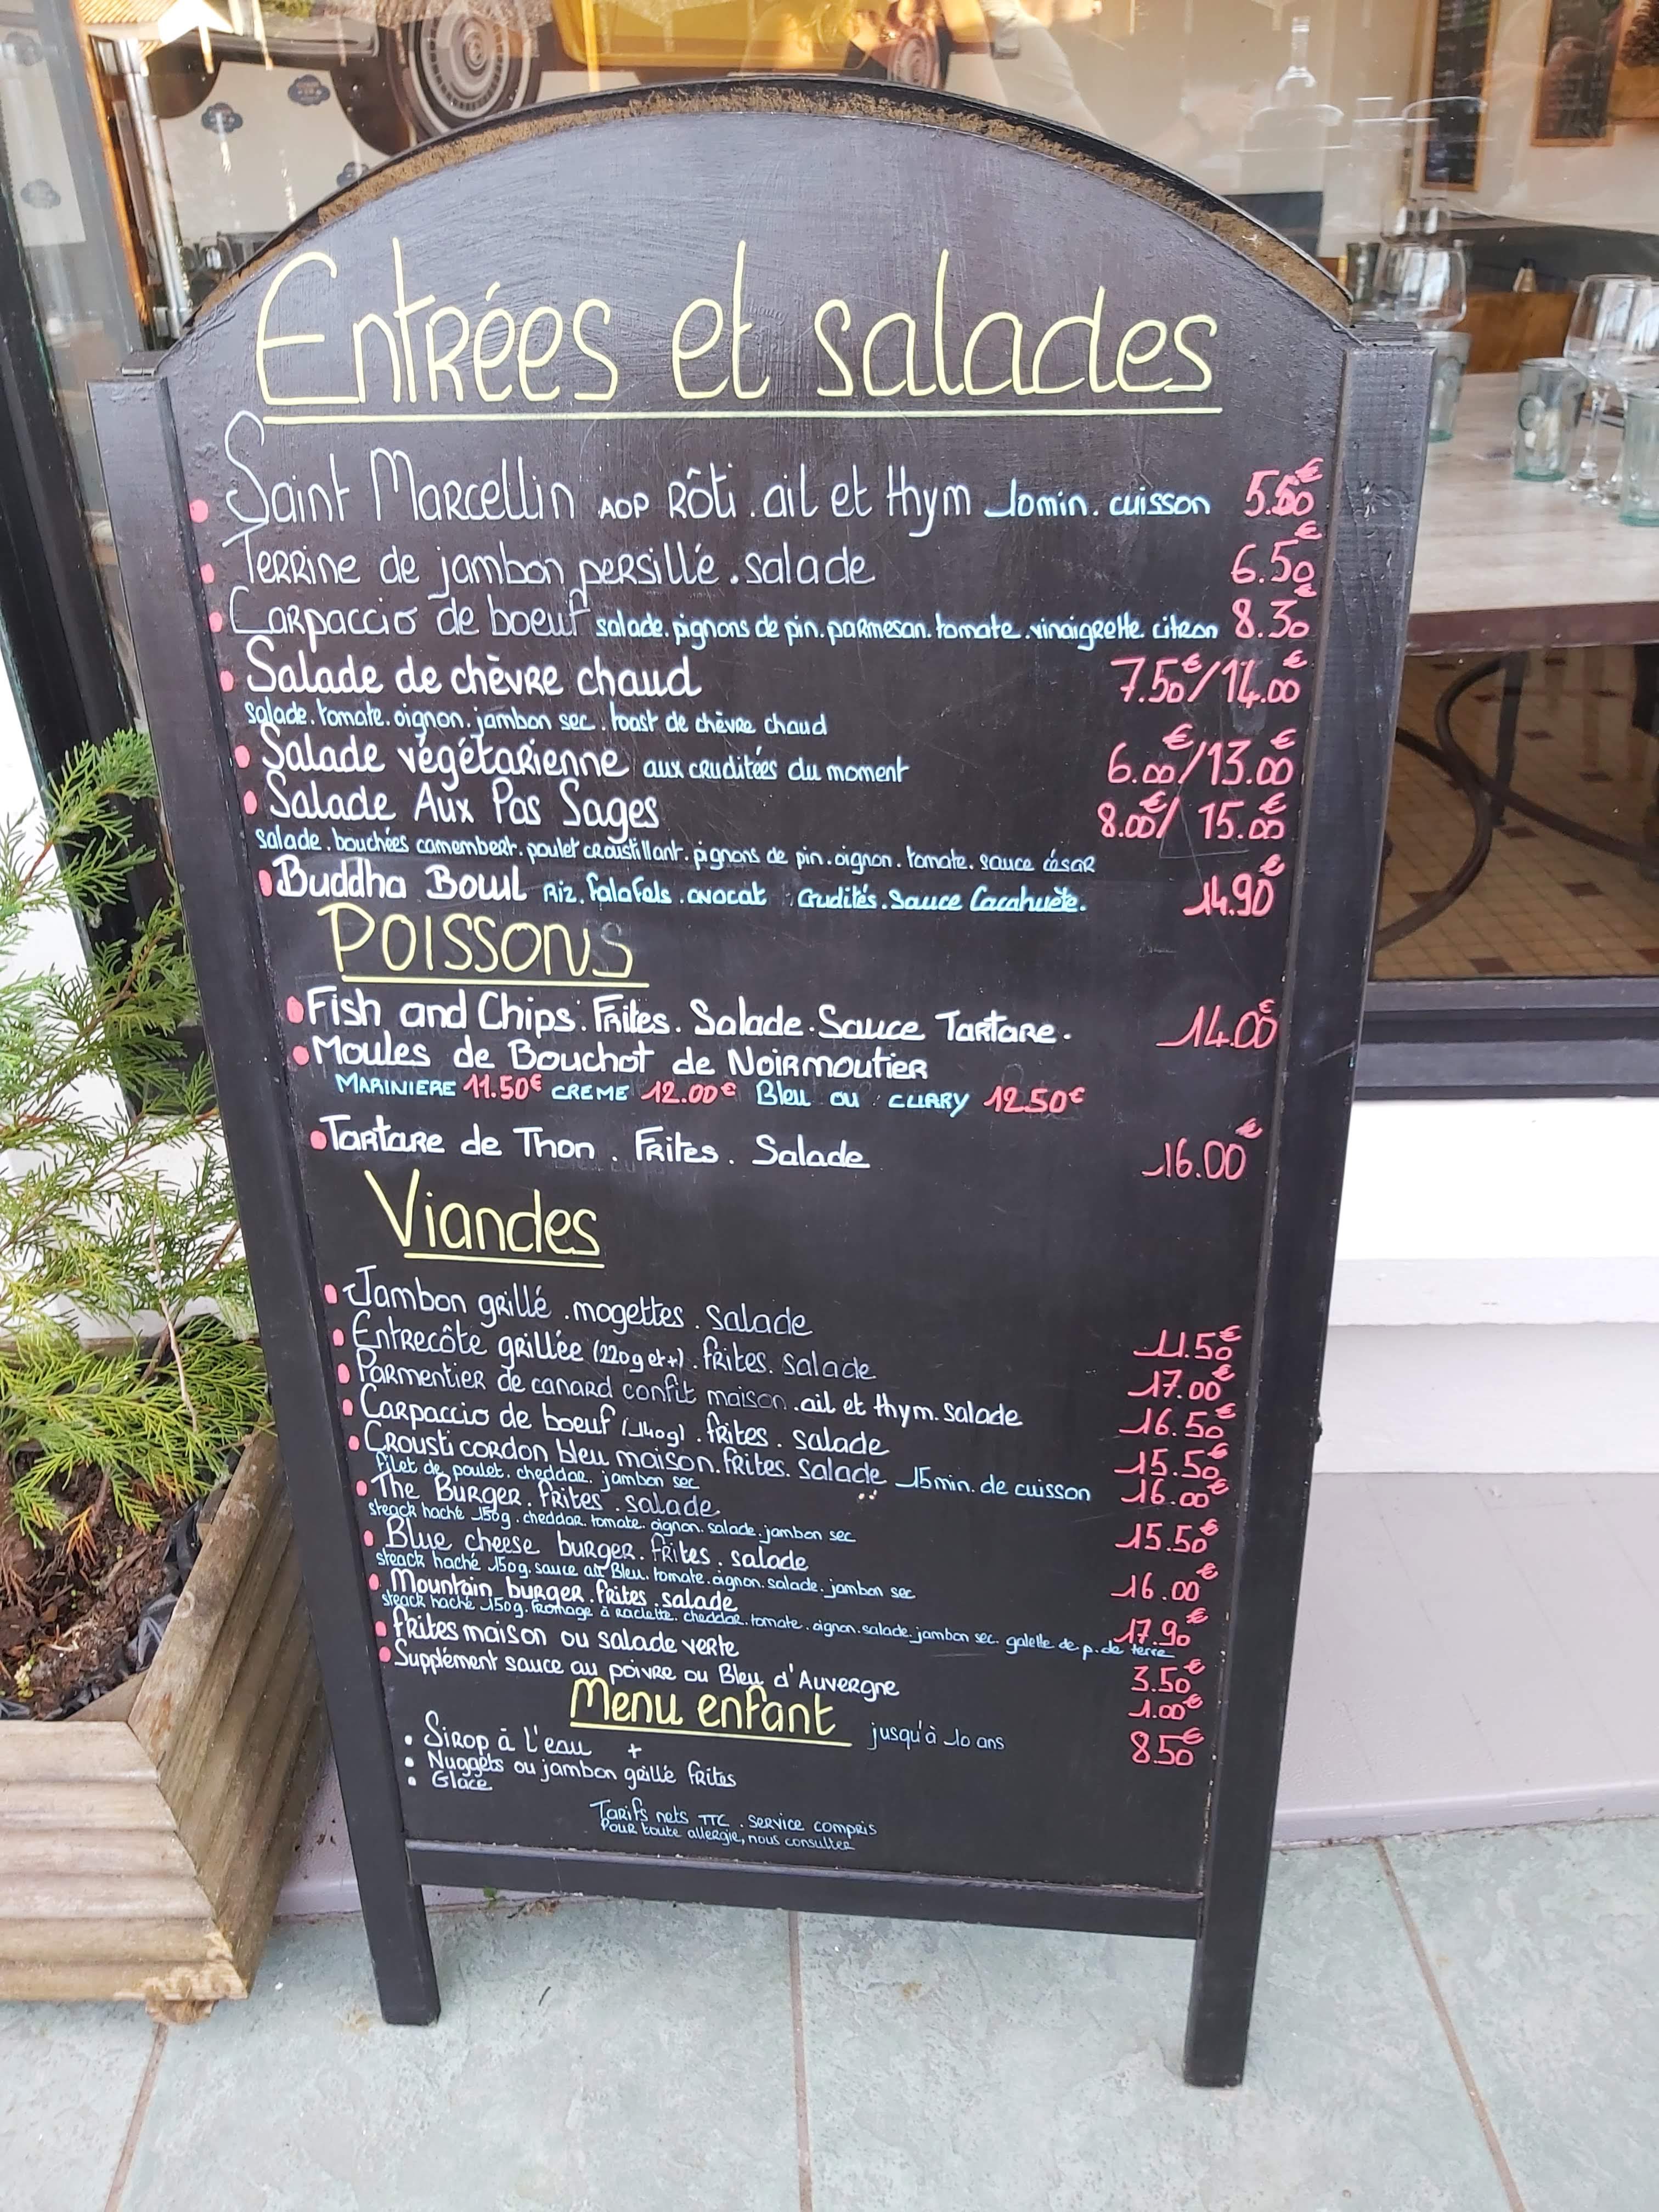 Entrées et salades
Saint Marcellin AOP Rôti . ail et thym 10min. cuisson 5.50€
Terrine de jambon persillé . salade 6.50€
Carpaccio de boeuf salade. pignons de pin. parmesan. tomate. vinaigrette citron 8.30€
Salade de chèvre chaud 7.50€/14.00€
salade. tomate. oignon. jambon sec. toast de chèvre chaud
Salade végétarienne aux cruditées du moment 6.00€/13.00€
Salade Aux Pas Sages 8.00€/ 15.00€
salade. bouchées camembert. poulet croustillant. pignons de pin. oignon. tomate. sauce césar
Buddha Bowl Riz. falafels. avocat . Crudités. Sauce Cacahuète. 14.90€
POISSONS
Fish and Chips. Frites. Salade. Sauce Tartare. 14.00€
Moules de Bouchot de Noirmoutier
MARINIERE 11.50€ CREME 12.00€ Bleu ou CURRY 12.50€
Tartare de Thon . Frites. Salade 16.00€
Viandes
Jambon grillé . mogettes. salade 11.50€
Entrecôte grillée (220g et+). frites. salade 17.00€
Parmentier de canard confit maison. ail et thym. salade 16.50€
Carpaccio de boeuf (140g). frites. salade 15.50€
Crousti cordon bleu maison. frites. salade 15min. de cuisson 16.00€
filet de poulet. cheddar. jambon sec
The Burger. frites. salade 15.50€
steack haché 150g. cheddar. tomate. oignon. salade. jambon sec
Blue cheese burger. frites. salade 16.00€
steack haché 150g. sauce au Bleu. tomate. oignon. salade. jambon sec
Mountain burger. frites. salade 17.90€
steack haché 150g. fromage à raclette. cheddar. tomate. oignon. salade. jambon sec. galette de p. de terre
Frites maison ou salade verte 3.50€
Supplément sauce au poivre ou Bleu d'Auvergne 1.00€
Menu enfant jusqu'à 10 ans 8.50€
Sirop à l'eau
+
Nuggets ou jambon grillé frites
Glace
Tarifs nets TTC . service compris
Pour toute allergie, nous consulter